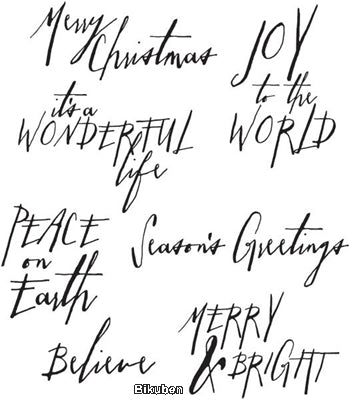 Merry
Christmas
JOY
to the
WORLD
it's a
WONDERFUL
life
PEACE
on
Earth
Season's Greetings
MERRY
& BRIGHT
Believe
Bikuben